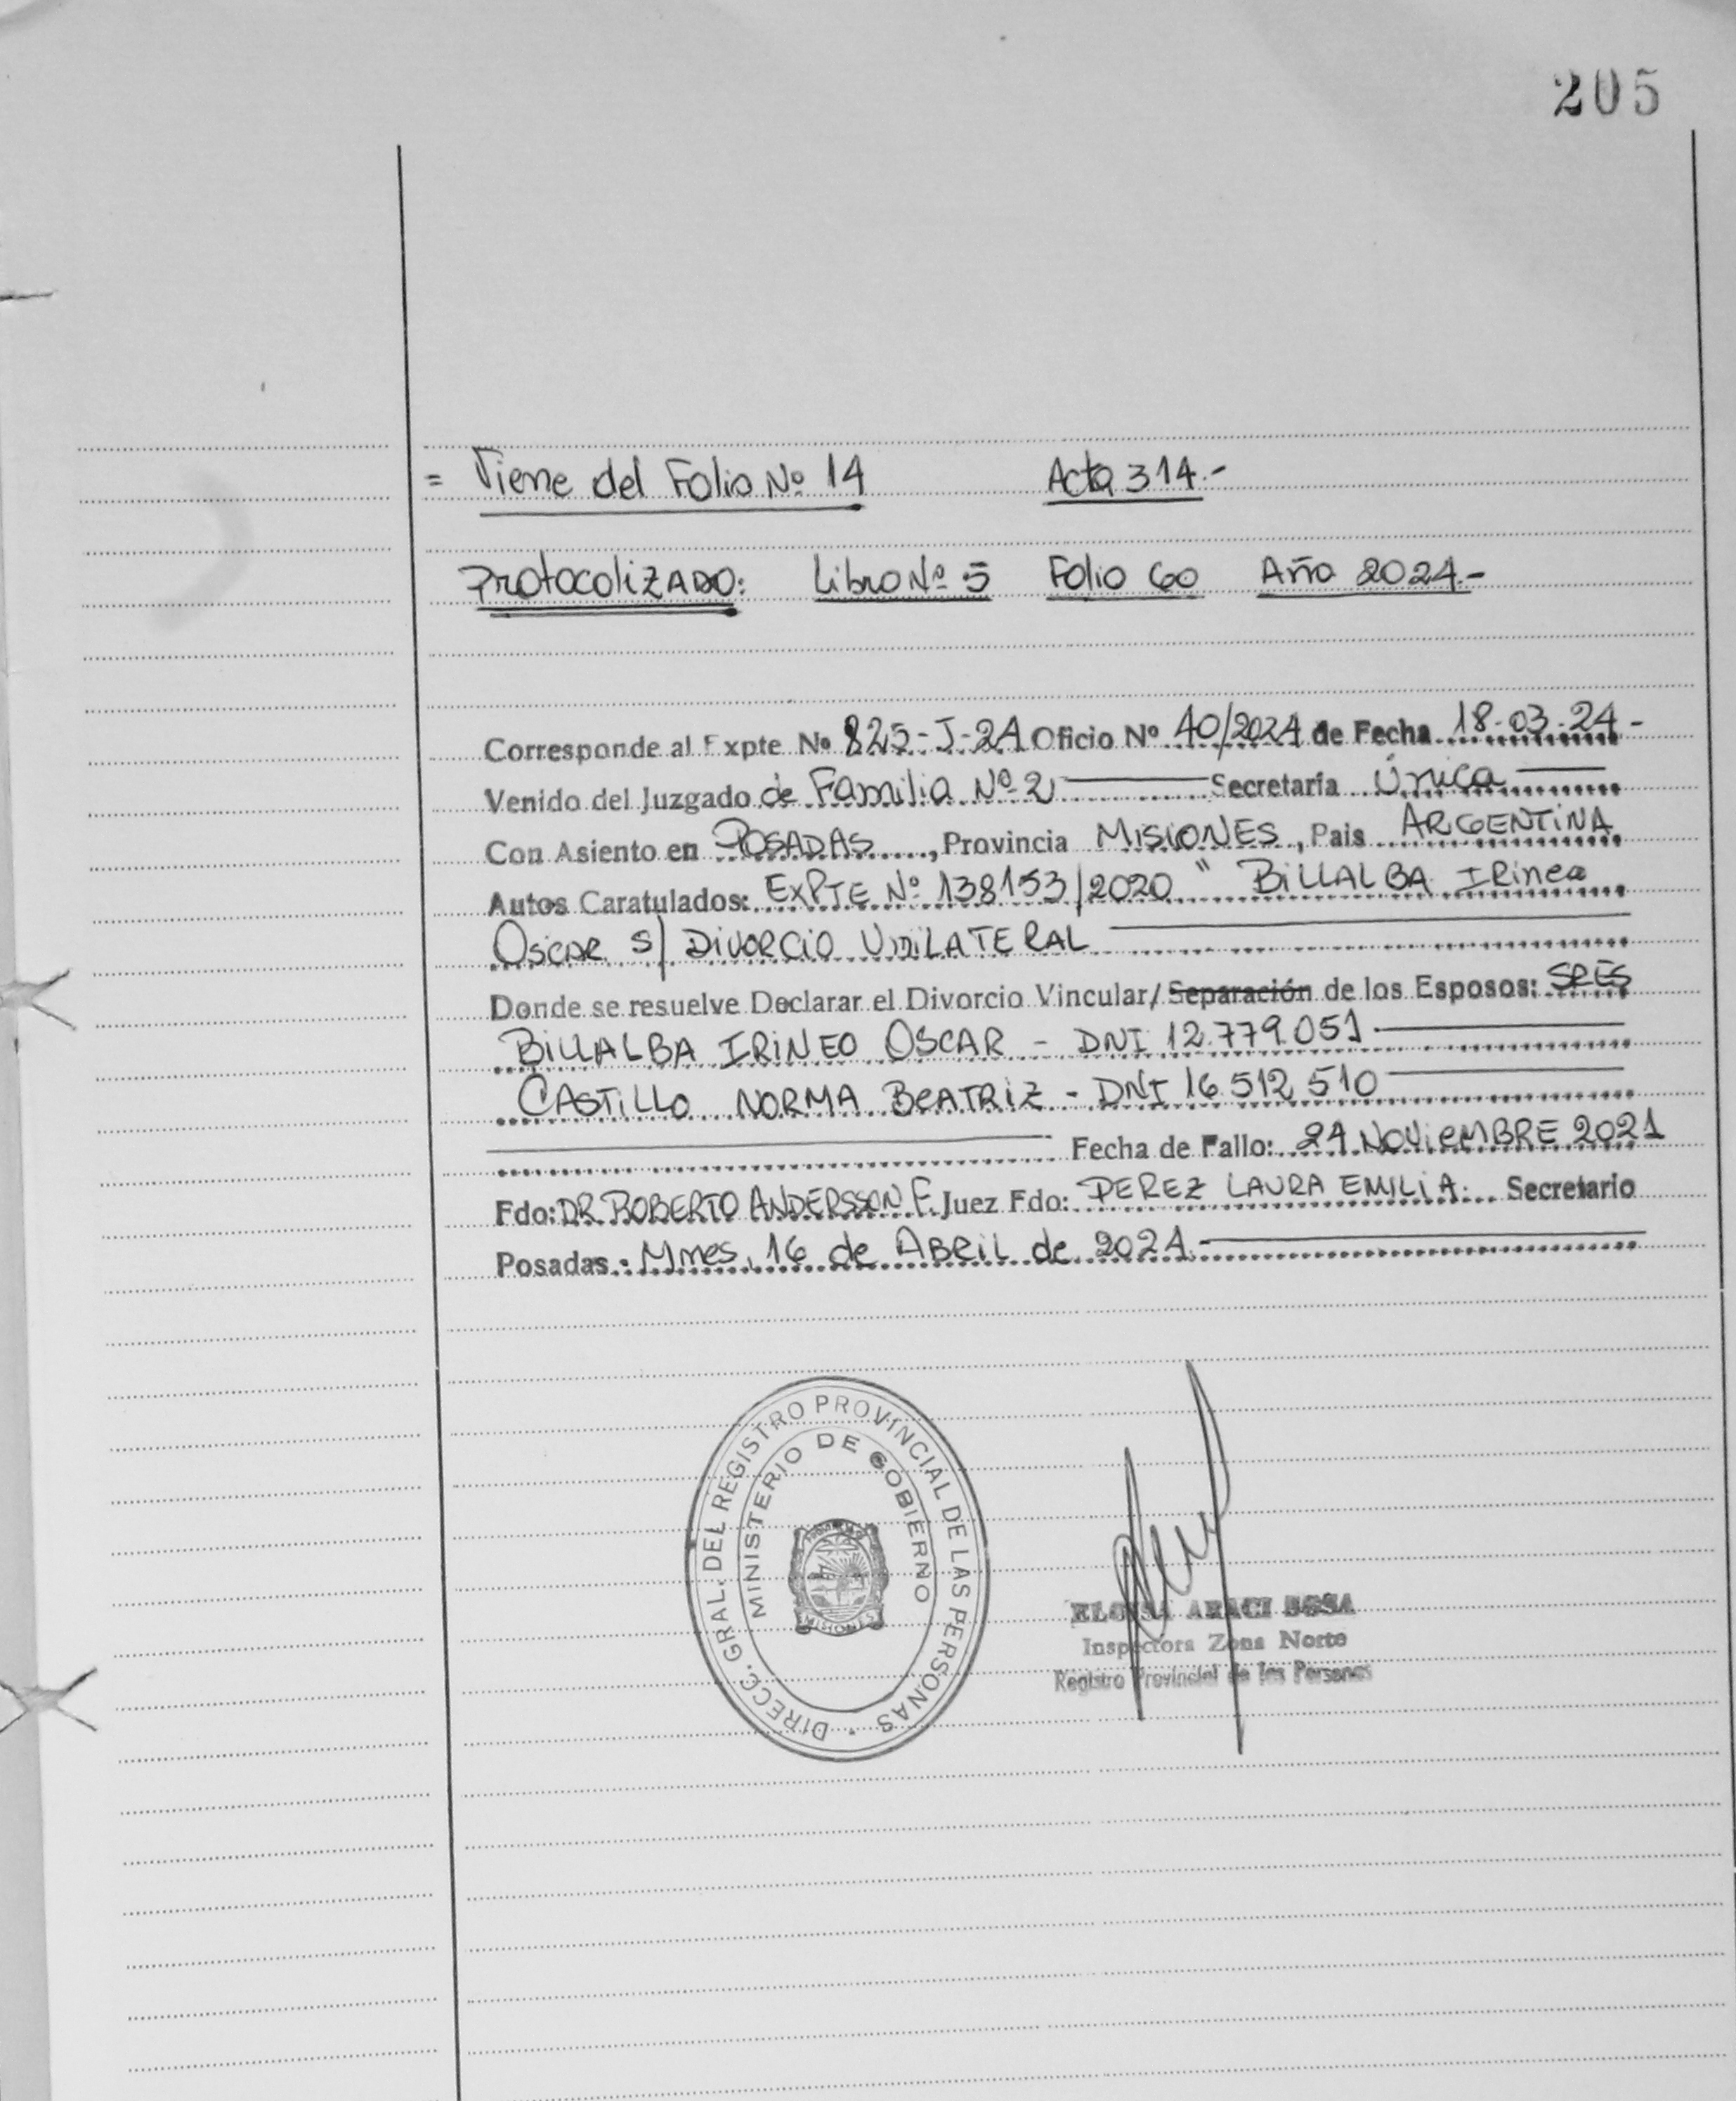 205
= Viene del Folio Nº 14 Acta 314.-
Protocolizado: Libro Nº 5 Folio 60 Año 2024.-
Corresponde al Expte Nº 825-J-24 Oficio Nº 40/2024 de Fecha 18-03-24-
Venido del Juzgado de Familia Nº 2 Secretaría Única
Con Asiento en POSADAS, Provincia MISIONES, Pais ARGENTINA
Autos Caratulados: EXPTE Nº 138153/2020 " BILLALBA IRineo
OSCAR S/ DIVORCIO UNILATERAL
Donde se resuelve Declarar el Divorcio Vincular/ Separación de los Esposos: SRES
BILLALBA IRINEO OSCAR - DNI 12.779.051
CASTILLO NORMA BEATRIZ - DNI 16.512.510
Fecha de Fallo: 24 NOVIEMBRE 2021
Fdo: DR ROBERTO ANDERSSON F. Juez Fdo: PEREZ LAURA EMILIA. Secretario
Posadas.: Mnes, 16 de ABRIL de 2024
DIRECC. GRAL. DEL REGISTRO PROVINCIAL DE LAS PERSONAS
MINISTERIO DE GOBIERNO
MISIONES
ELOISA ARACI SOSA
Inspectora Zona Norte
Registro Provincial de las Personas